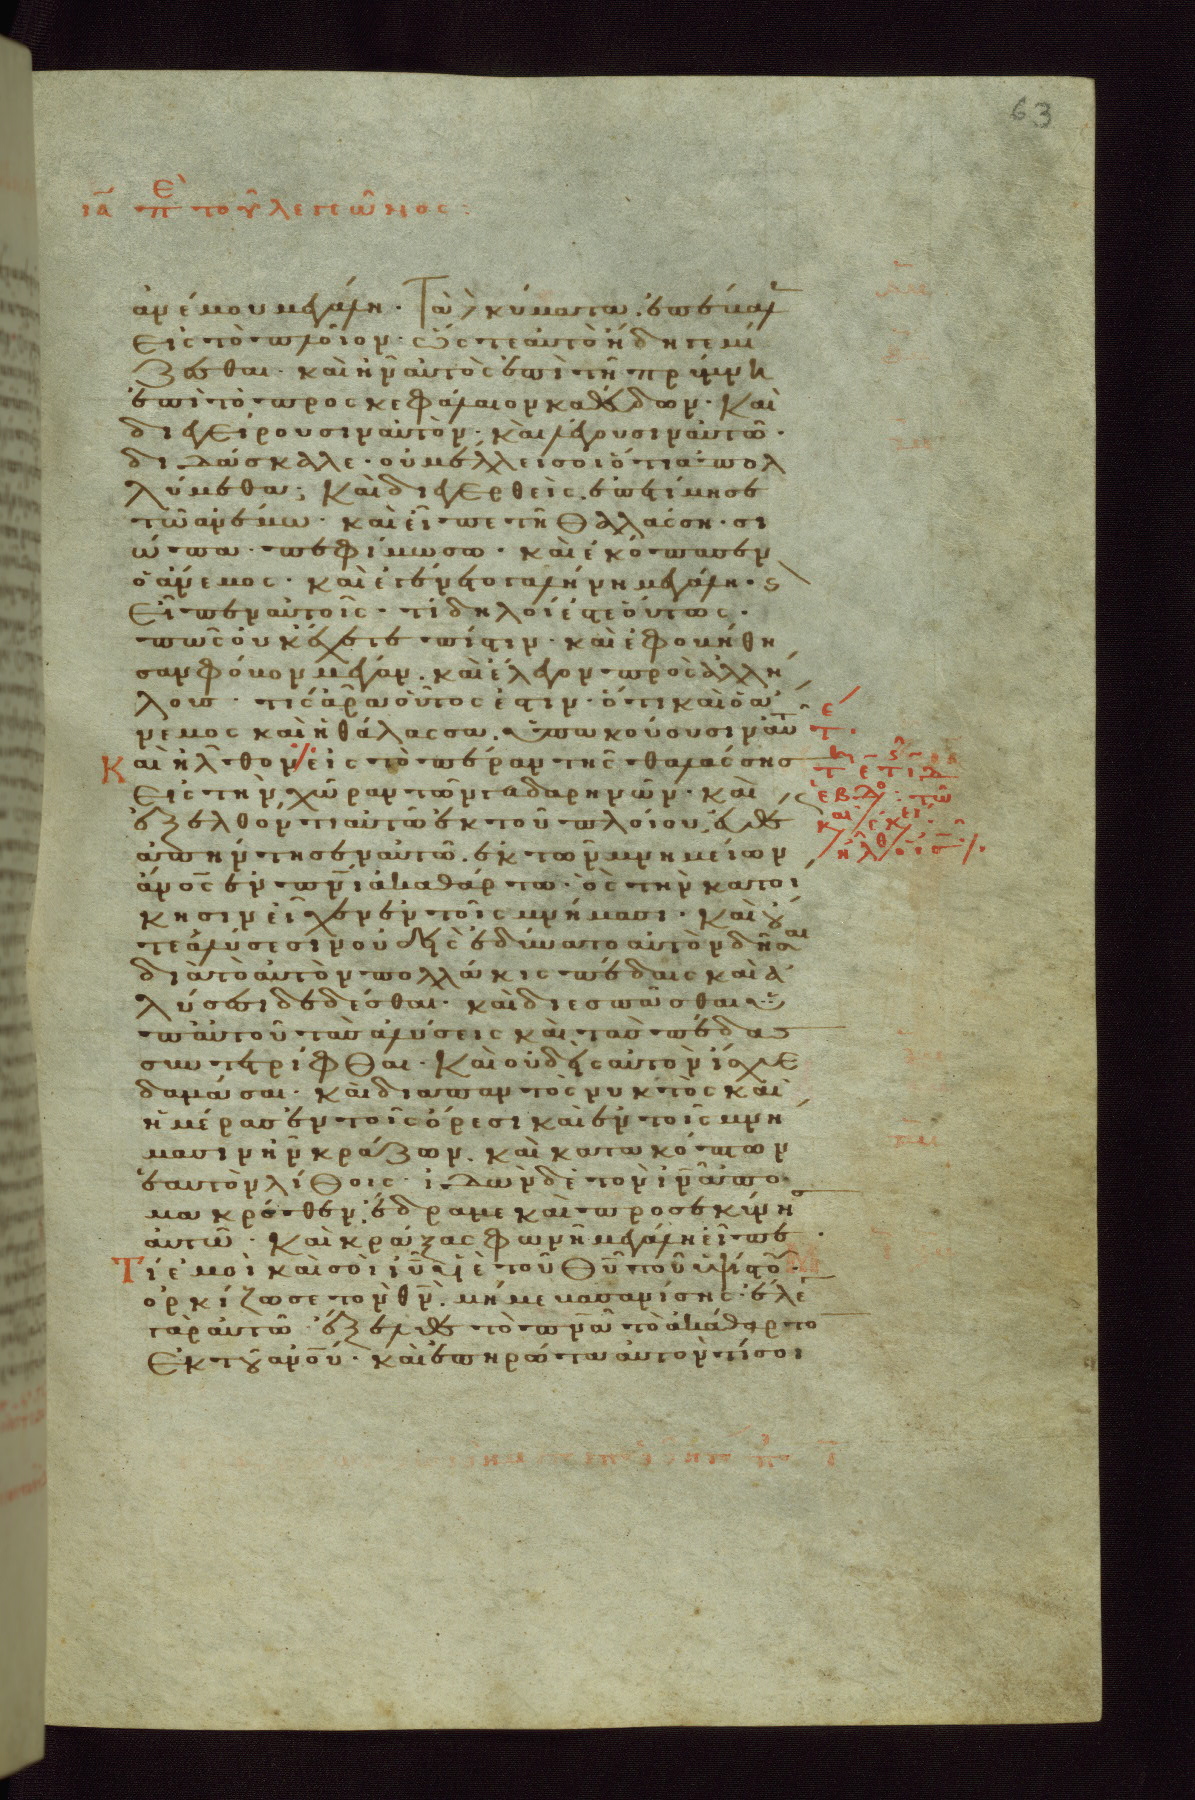 63
ια περὶ τοῦ λεγεῶνος :
ἀνέμου μεγάλη · Τὰ δὲ κύματα ἐπέβαλ
εἰς τὸ πλοῖον · ὥστε αὐτὸ ἤδη γεμί
ζεσθαι · καὶ ἦν αὐτὸς ἐπὶ τῆ πρύμνη
ἐπὶ τὸ προσκεφάλαιον καθεύδων · Καὶ
διεγείρουσιν αὐτὸν · καὶ λέγουσιν αὐτῶ ·
διδάσκαλε · οὐ μέλλει σοι ὅτι ἀπολ
λύμεθα ; Καὶ διεγερθεὶς ἐπετίμησε
τῶ ἀνέμω · καὶ εἶπε τῆ θαλάσση · σι
ώπα · πεφίμωσο · καὶ ἐκόπασεν
ὁ ἄνεμος · καὶ ἐγένετο γαλήνη μεγάλη · ϛ
εἶπεν αὐτοῖς · τί δηλοί ἐστε οὕτως ·
πῶς οὐκ ἔχετε πίστιν · καὶ ἐφοβήθη
σαν φόβον μέγαν · καὶ ἔλεγον πρὸς ἀλλή
λους · τίς ἄρα οὗτος ἐστιν · ὅτι καὶ ὁ ἄ
νεμος καὶ ἡ θάλασσα ὑπακούουσιν αὐτῶ
Καὶ ἦλθον εἰς τὸ πέραν τῆς θαλάσσης
εἰς τὴν χώραν τῶν γαδαρηνῶν · καὶ
ἐξελθόντι αὐτῶ ἐκ τοῦ πλοίου, εὐθὺς
ἀπήντησεν αὐτῶ ἐκ τῶν μνημείων
ἄνος ἐν πνι ἀκαθάρτω · ὃς τὴν κατοί
κησιν εἶχεν ἐν τοῖς μνήμασι · Καὶ οὔ
τε ἁλύσεσιν οὐδεὶς ἐδύνατο αὐτὸν δῆσαι
διὰ τὸ αὐτὸν πολλάκις πέδαις καὶ ἁ
λύσεσι δεδέσθαι · καὶ διεσπᾶσθαι ὑ
π αὐτοῦ τὰς ἁλύσεις καὶ τὰς πέδας
συντετρίφθαι · Καὶ οὐδεὶς αὐτὸν ἴσχυε
δαμάσαι · καὶ διαπαντὸς νυκτὸς καὶ
ἡμέρας ἐν τοῖς ὄρεσι καὶ ἐν τοῖς μνή
μασιν ἦν κράζων · καὶ κατακόπτων
ἑαυτὸν λίθοις · ἰδὼν δὲ τὸν ιν ἀπὸ
μακρόθεν, ἔδραμε καὶ προσεκύνησ
αὐτῶ · Καὶ κράξας φωνῆ μεγάλη εἶπε ·
Τί ἐμοὶ καὶ σοὶ ιυ υιὲ τοῦ θυ τοῦ ὑψίστου ·
ὁρκίζω σε τὸν θν · μή με βασανίσης · ἔλε
γὰρ αὐτῶ · ἔξελθε τὸ πνα τὸ ἀκάθαρτον
ἐκ τοῦ ανου · καὶ ἐπηρώτα αὐτὸν τί σοι